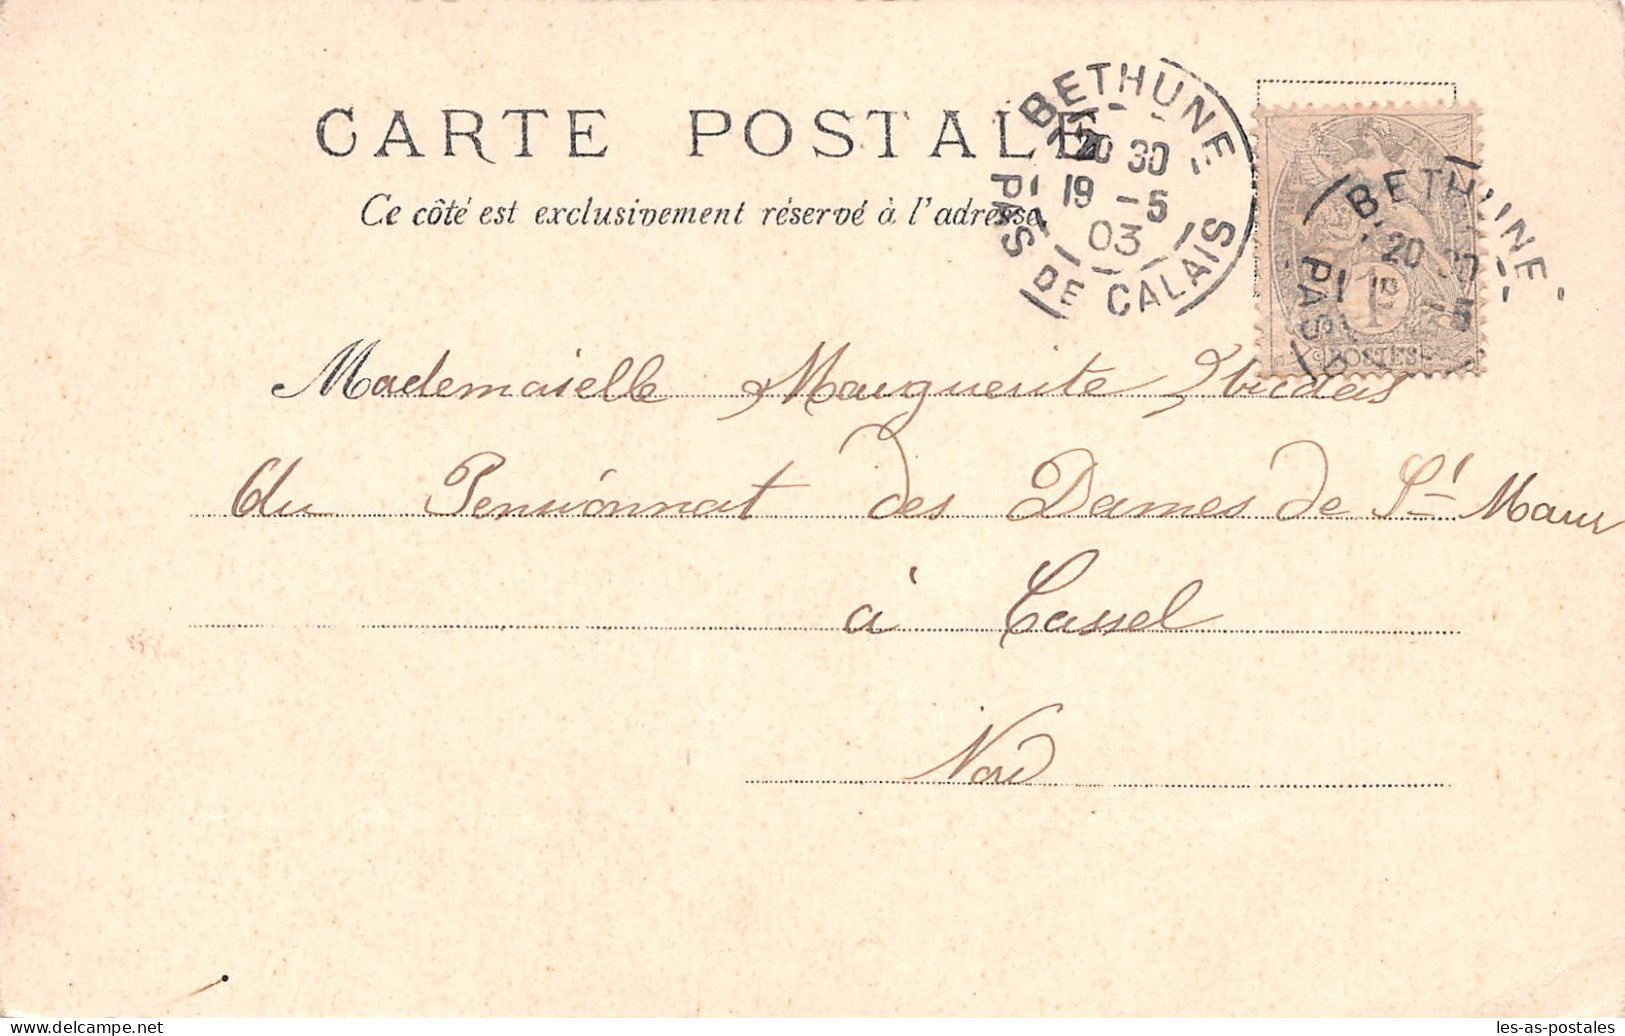 CARTE POSTALE
Ce côté est exclusivement réservé à l'adresse
BETHUNE
20 30
19 -5
03
PAS DE CALAIS
BETHUNE
20 30
PAS
1c
POSTES
Mademoiselle Marguerite
du Pensionnat des Dames de St Maur
à Cassel
Nord
les-as-postales
delcampe.net